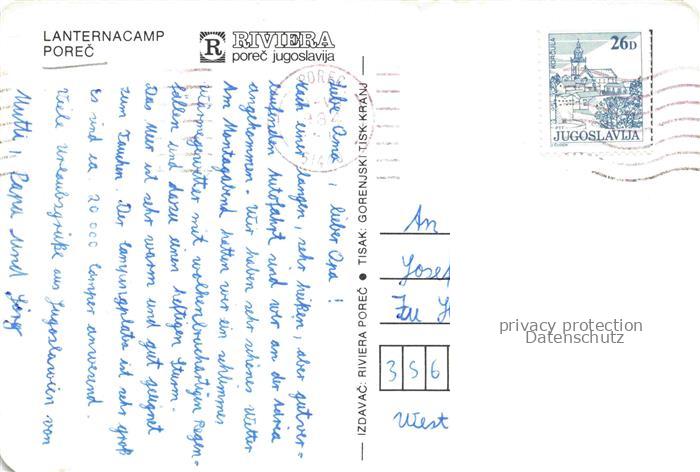 LANTERNACAMP
POREČ
R RIVIERA
poreč jugoslavija
Liebe Oma, lieber Opa!
Nach einer langen, sehr heißen, aber gut ver=
laufenden Autofahrt sind wir an der Adria
angekommen. Wir haben sehr schönes Wetter
Am Montagabend hatten wir ein schlimmes
Wärmegewitter mit wolkenbruchartigen Regen=
fällen und dazu einen heftigen Sturm.
Das Meer ist sehr warm und gut geeignet
zum Tauchen. Der Campingplatz ist sehr groß
es sind ca. 20 000 Camper anwesend.
Viele Urlaubsgrüße aus Jugoslawien von
Mutti, Papa und Jörg
IZDAVAČ: RIVIERA POREČ ● TISAK: GORENJSKI TISK KRANJ
POREČ
26D
KORČULA
PTT
JUGOSLAVIJA
An
Josef
Zu
356
West
privacy protection
Datenschutz